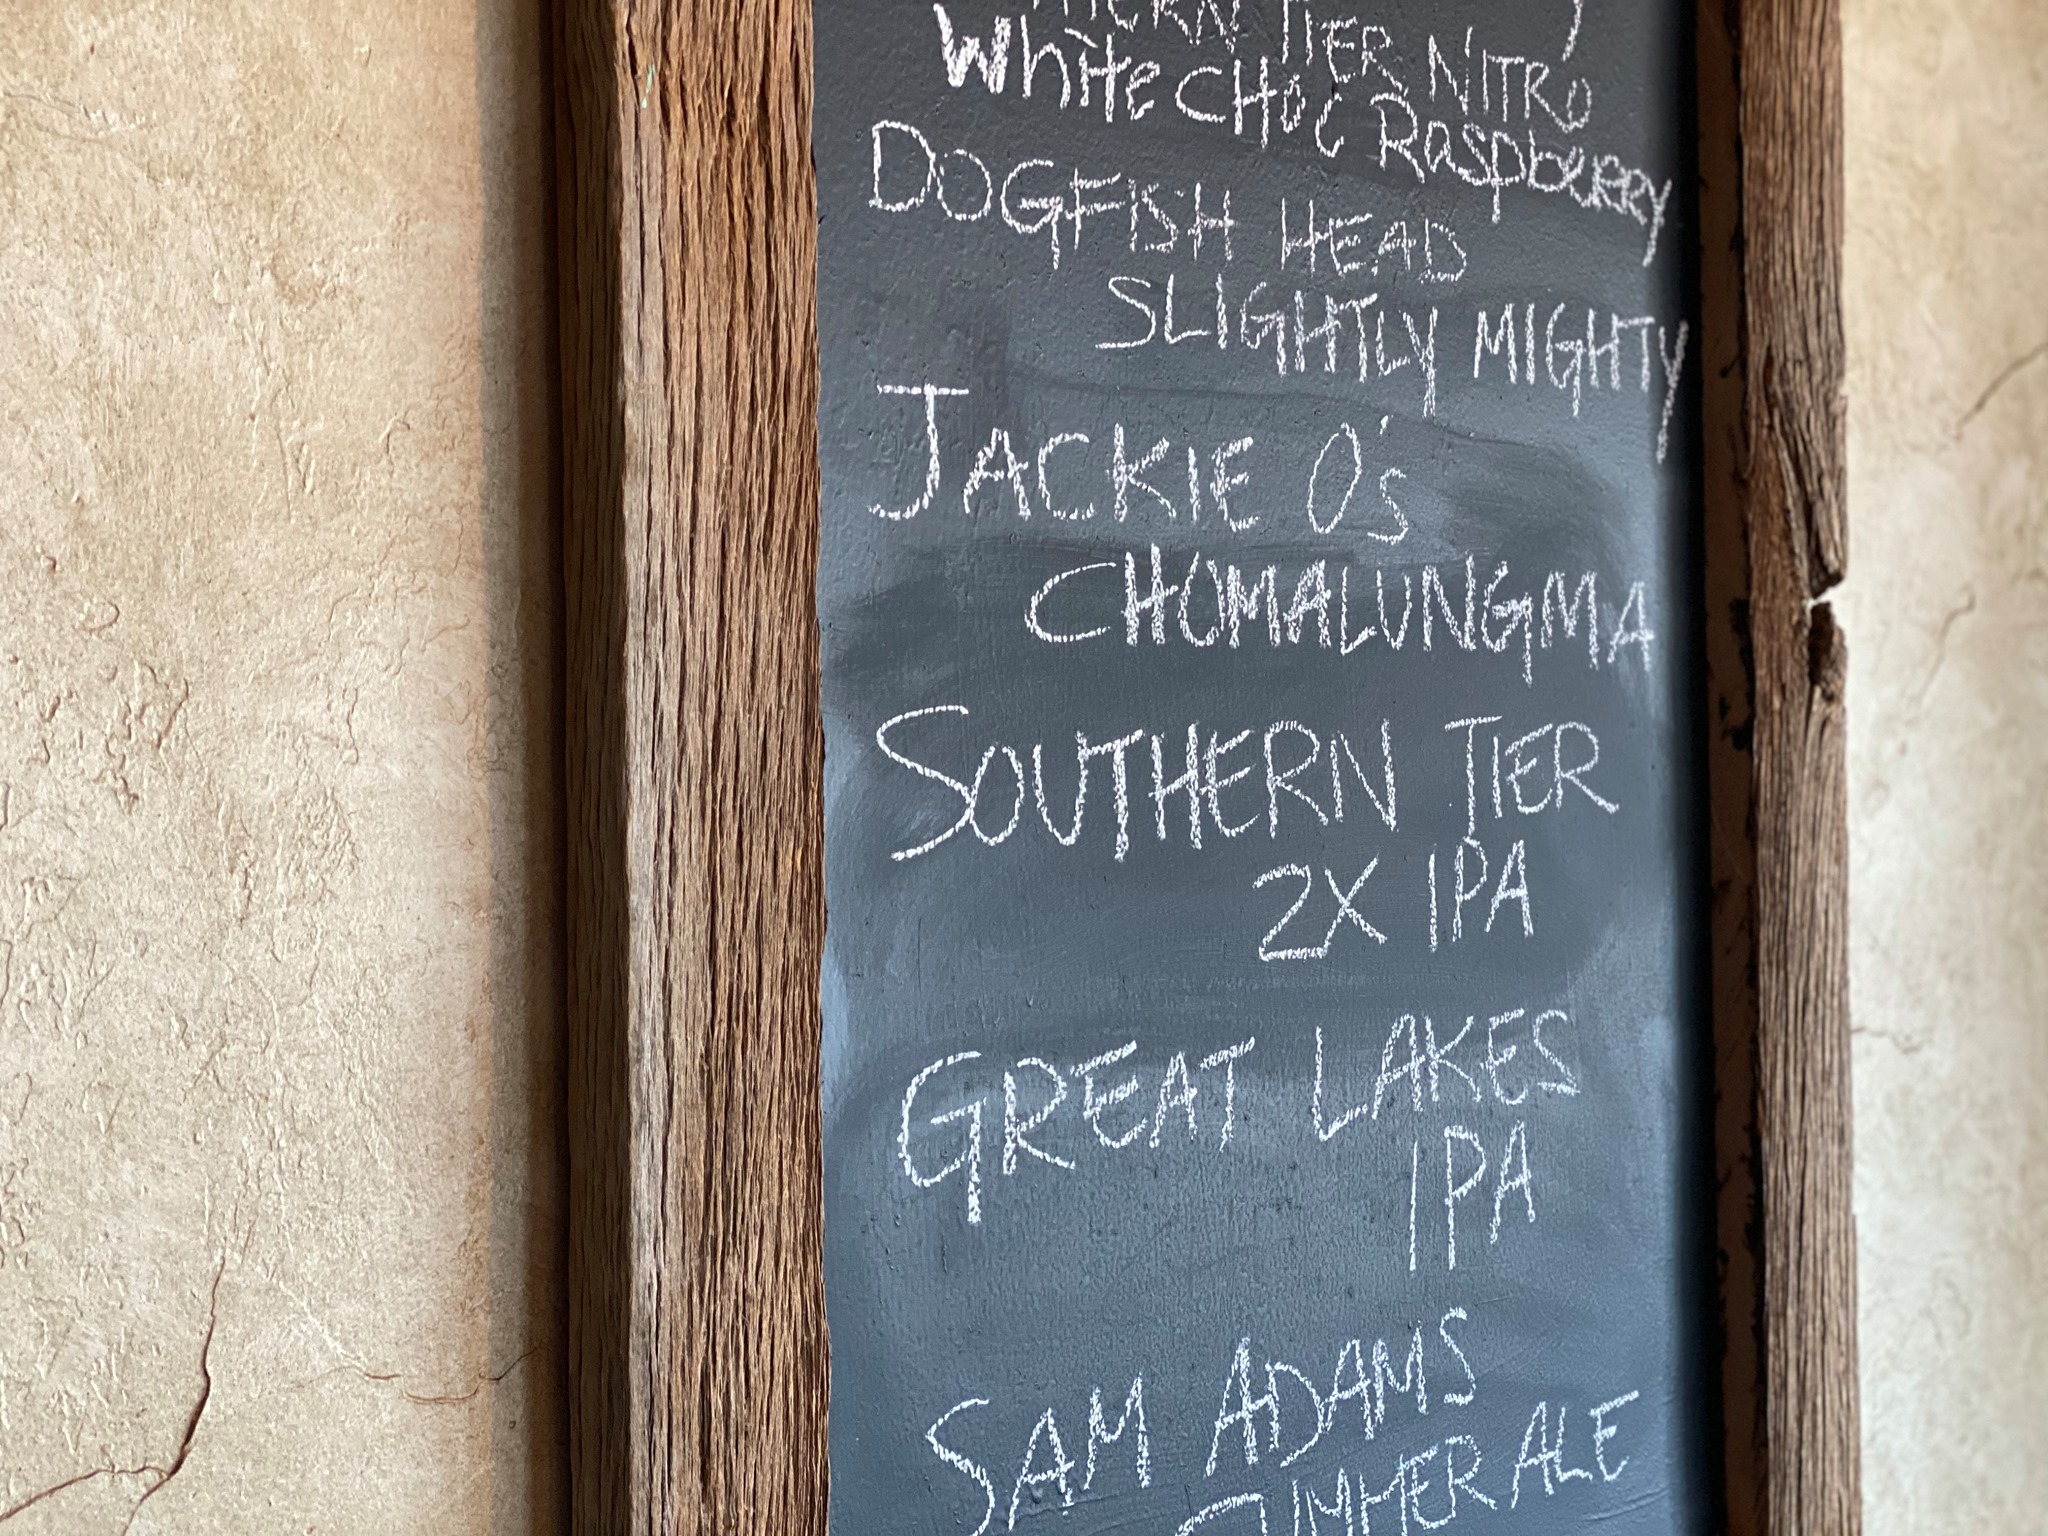 TIER NITRO
White CHOC Raspberry
DOGFISH HEAD
SLIGHTLY MIGHTY
JACKIE O's
CHOMALUNGMA
SOUTHERN TIER
2X IPA
GREAT LAKES
IPA
SAM ADAMS
ALE